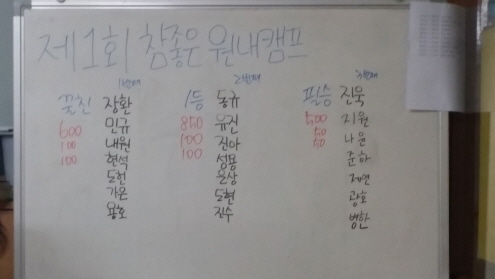 제1회 참좋은 원내캠프
1번째 2번째 3번째
꼴찐 장환 1등 동규 필승 진욱
600 민규 850 유진 500 지원
100 내원 100 진아 50 나윤
100 현석 100 성용 50 준하
도헌 윤상 제연
가온 도현 광호
용호 진수 병찬